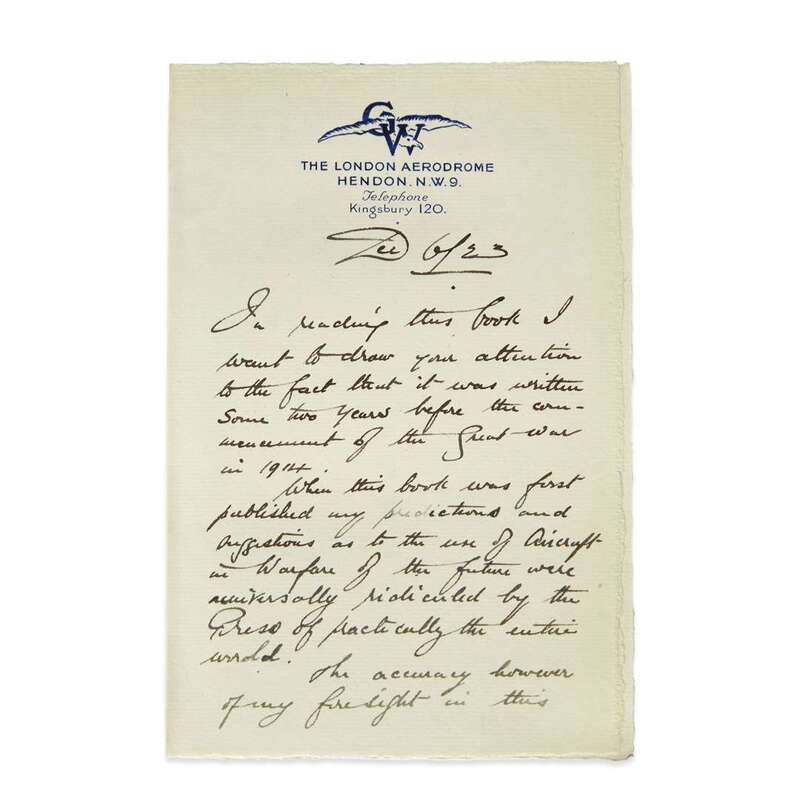 GW
THE LONDON AERODROME
HENDON. N.W.9.
Telephone
Kingsbury 120.
Dec 6/23
In reading this book I
want to draw your attention
to the fact that it was written
Some two years before the com-
mencement of the Great War
in 1914.
When this book was first
published my predictions and
suggestions as to the use of Aircraft
in Warfare of the future were
universally ridiculed by the
Press of practically the entire
world.
The accuracy however
of my foresight in this